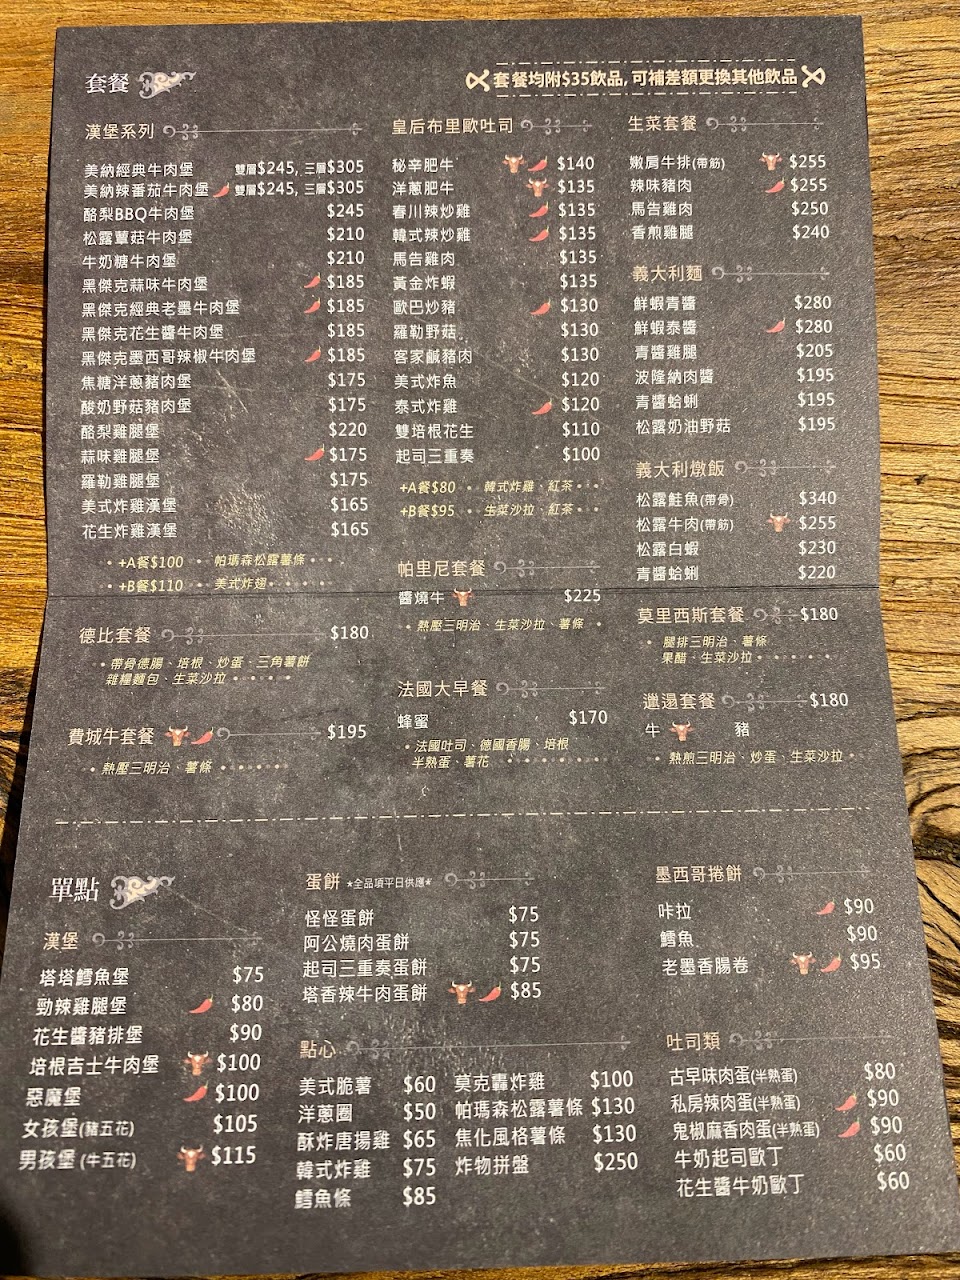 套餐
套餐均附$35飲品,可補差額更換其他飲品
漢堡系列
美納經典牛肉堡 雙層$245, 三層$305
美納辣番茄牛肉堡 雙層$245, 三層$305
酪梨BBQ牛肉堡 $245
松露蕈菇牛肉堡 $210
牛奶糖牛肉堡 $210
黑傑克蒜味牛肉堡 $185
黑傑克經典老墨牛肉堡 $185
黑傑克花生醬牛肉堡 $185
黑傑克墨西哥辣椒牛肉堡 $185
焦糖洋蔥豬肉堡 $175
酸奶野菇豬肉堡 $175
酪梨雞腿堡 $220
蒜味雞腿堡 $175
羅勒雞腿堡 $175
美式炸雞漢堡 $165
花生炸雞漢堡 $165
+A餐$100 帕瑪森松露薯條
+B餐$110 美式炸翅
德比套餐 $180
帶骨德腸、培根、炒蛋、三角薯餅
雜糧麵包、生菜沙拉
費城牛套餐 $195
熱壓三明治、薯條
皇后布里歐吐司
秘辛肥牛 $140
洋蔥肥牛 $135
春川辣炒雞 $135
韓式辣炒雞 $135
馬告雞肉 $135
黃金炸蝦 $135
歐巴炒豬 $130
羅勒野菇 $130
客家鹹豬肉 $130
美式炸魚 $120
泰式炸雞 $120
雙培根花生 $110
起司三重奏 $100
+A餐$80 韓式炸雞、紅茶
+B餐$95 生菜沙拉、紅茶
帕里尼套餐
醬燒牛 $225
熱壓三明治、生菜沙拉、薯條
法國大早餐
蜂蜜 $170
法國吐司、德國香腸、培根
半熟蛋、薯花
生菜套餐
嫩肩牛排(帶筋) $255
辣味豬肉 $255
馬告雞肉 $250
香煎雞腿 $240
義大利麵
鮮蝦青醬 $280
鮮蝦泰醬 $280
青醬雞腿 $205
波隆納肉醬 $195
青醬蛤蜊 $195
松露奶油野菇 $195
義大利燉飯
松露鮭魚(帶骨) $340
松露牛肉(帶筋) $255
松露白蝦 $230
青醬蛤蜊 $220
莫里西斯套餐 $180
腿排三明治、薯條
果醋、生菜沙拉
邋遢套餐 $180
牛 豬
熱煎三明治、炒蛋、生菜沙拉
單點
漢堡
塔塔鱈魚堡 $75
勁辣雞腿堡 $80
花生醬豬排堡 $90
培根吉士牛肉堡 $100
惡魔堡 $100
女孩堡(豬五花) $105
男孩堡 (牛五花) $115
蛋餅 *全品項平日供應*
怪怪蛋餅 $75
阿公燒肉蛋餅 $75
起司三重奏蛋餅 $75
塔香辣牛肉蛋餅 $85
點心
美式脆薯 $60
洋蔥圈 $50
酥炸唐揚雞 $65
韓式炸雞 $75
鱈魚條 $85
莫克轟炸雞 $100
帕瑪森松露薯條 $130
焦化風格薯條 $130
炸物拼盤 $250
墨西哥捲餅
咔拉 $90
鱈魚 $90
老墨香腸卷 $95
吐司類
古早味肉蛋(半熟蛋) $80
私房辣肉蛋(半熟蛋) $90
鬼椒麻香肉蛋(半熟蛋) $90
牛奶起司歐丁 $60
花生醬牛奶歐丁 $60